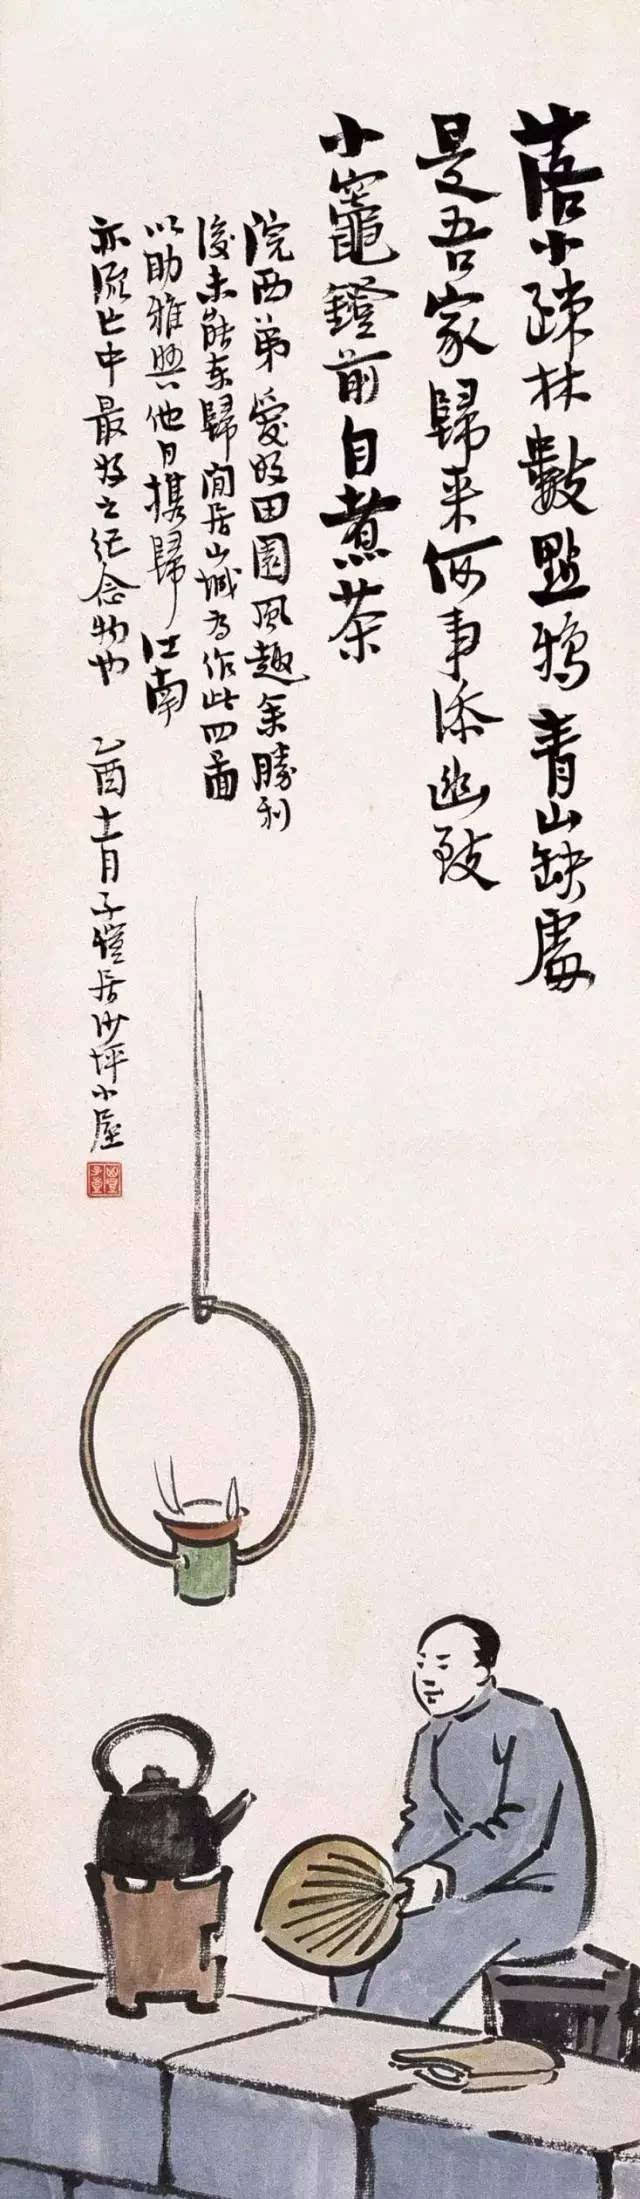 落小疎林數點鴉青山缺處
是吾家歸来何事添幽致
小竈鐙前自煮茶
院西弟愛好田園風趣余勝利
後未能東歸閒居山城為作此四圖
以助雅興他日携歸江南
亦流亡中最好之紀念物也 乙酉十一月子愷居沙坪小屋